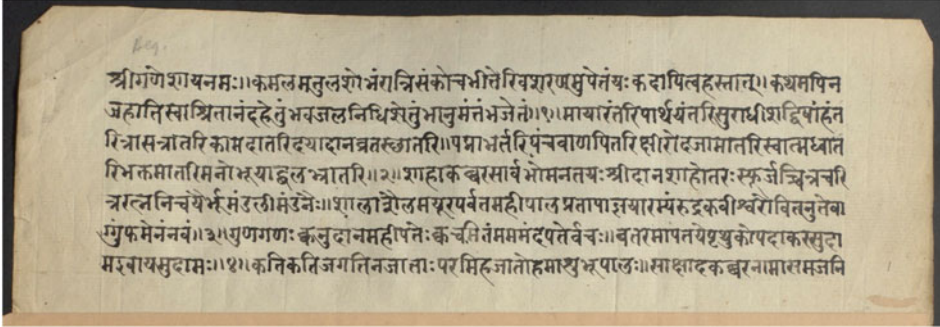 Beg.
श्रीगणेशायनमः॥कमलमतुलशोभंरात्रिसंकोचभीतेरिवशरणमुपेतंयःकदापित्वहस्तात्॥कथमपिन
जहातिस्वाश्रितानंदहेतुंभवजलनिधिसेतुंभानुमंतंभजेतं॥१॥मायारांतरिपार्थयंतरिसुराधीशद्विषांहंत
रित्रासत्रातरिकामदातरिदयादानव्रतस्छातरि॥पद्माभर्तरिपंचबाणपितरिक्षीरोदजामातरिस्वात्मध्यात
रिभक्तमातरिमनोभूयाद्बलभ्रातरि॥२॥शाहाकब्बरसार्वभोमनतयःश्रीदानशाहोतरःस्फूर्जच्चित्रचरि
त्ररत्ननिचयैर्भूमंडलीमंडनैः॥शालाशैलमयूरपर्वतमहीपालप्रतापाज्ञयारम्यंरुद्रकवीश्वरोवितनुतेवा
ग्गुंफमेनंनवं॥३॥गुणगणःक्वनुदानमहीपतेःक्वच मममंदपतेर्वचः॥वतरमापतयेपृथुकोपदाकस्सुदा
मइवायसुदामः॥४॥कतिकतिजगतिनजाताःपरमिहजातोहमाशुभूपालः॥साक्षादकब्बरनामासमजनि